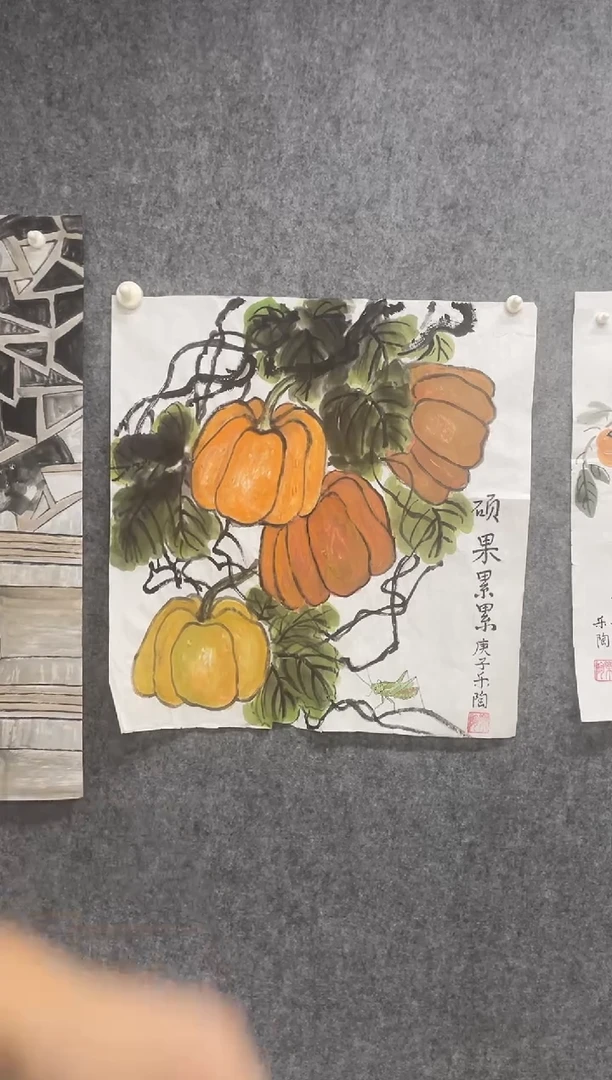 硕果累累
庚子乐陶
乐陶